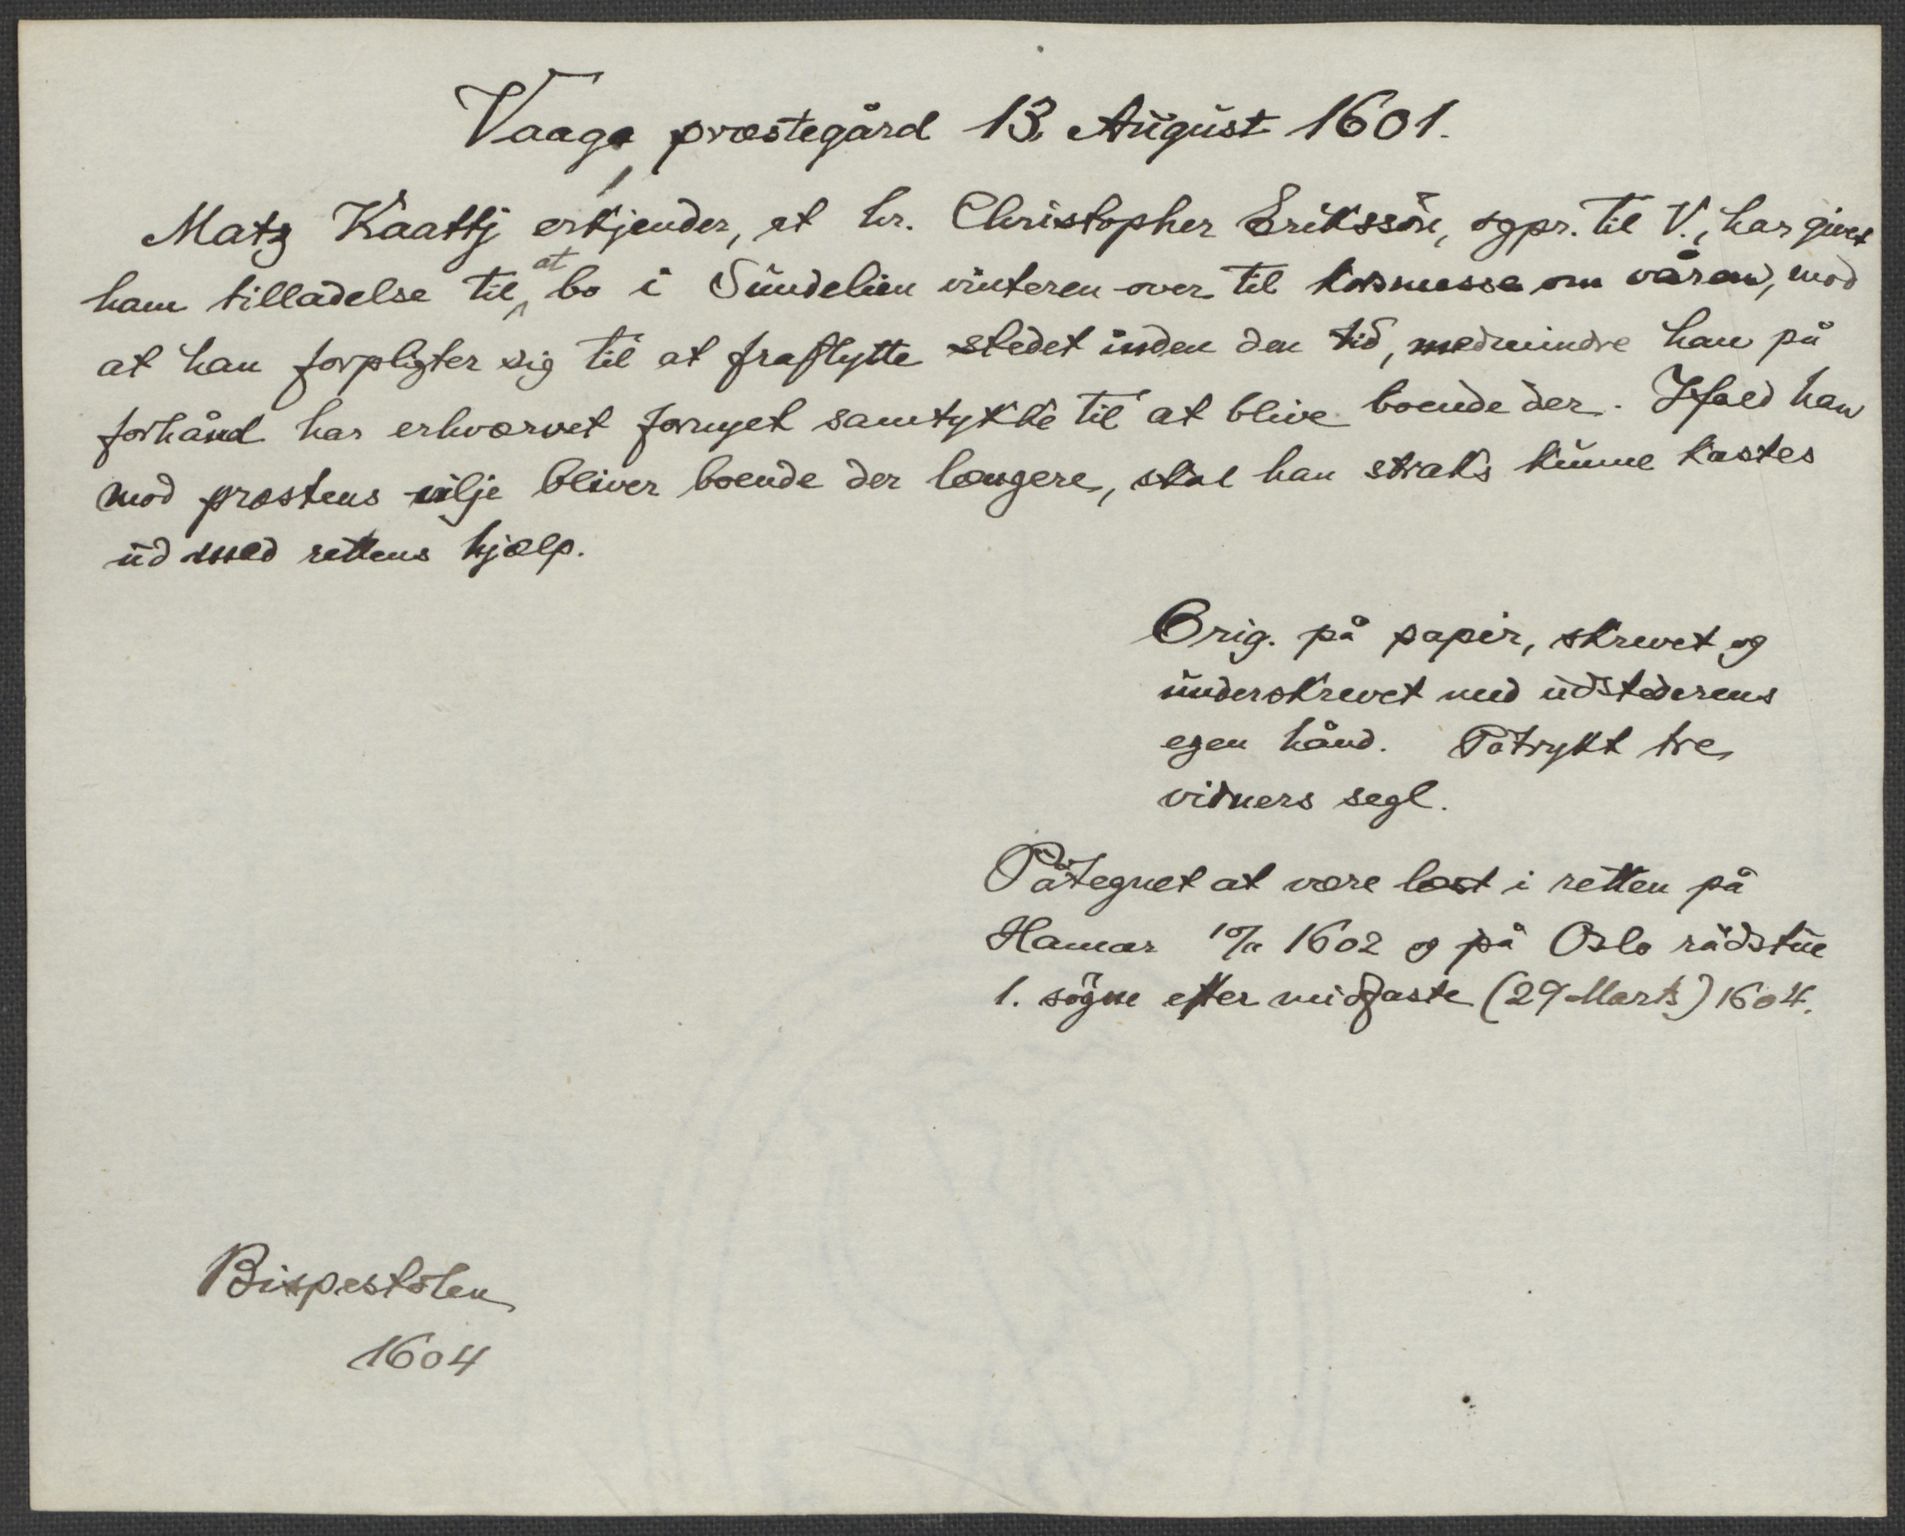 Vaage præstegård 13. August 1601.
Matz Kaattj erkjender, at hr. Christopher Erikssön, sgpr. til V., har givet
ham tilladelse til at bo i Sundelien vinteren over til korsmesse om våren, mod
at han forpligter sig til at fraflytte stedet inden den tid, medmindre han på
forhånd har erhvervet fornyet samtykke til at blive boende der. Ifald han
mod præstens vilje bliver boende der længere, skal han straks kunne kastes
ud med rettens hjælp.
Orig. på papir, skrevet og
underskrevet med udstederens
egen hånd. Påtrykt tre
vidners segl.
Påtegnet at være læst i retten på
Hamar 1602 og på Oslo rådstue
1. søgne efter midfaste (29 Marts) 1604.
Bispestolen
1604